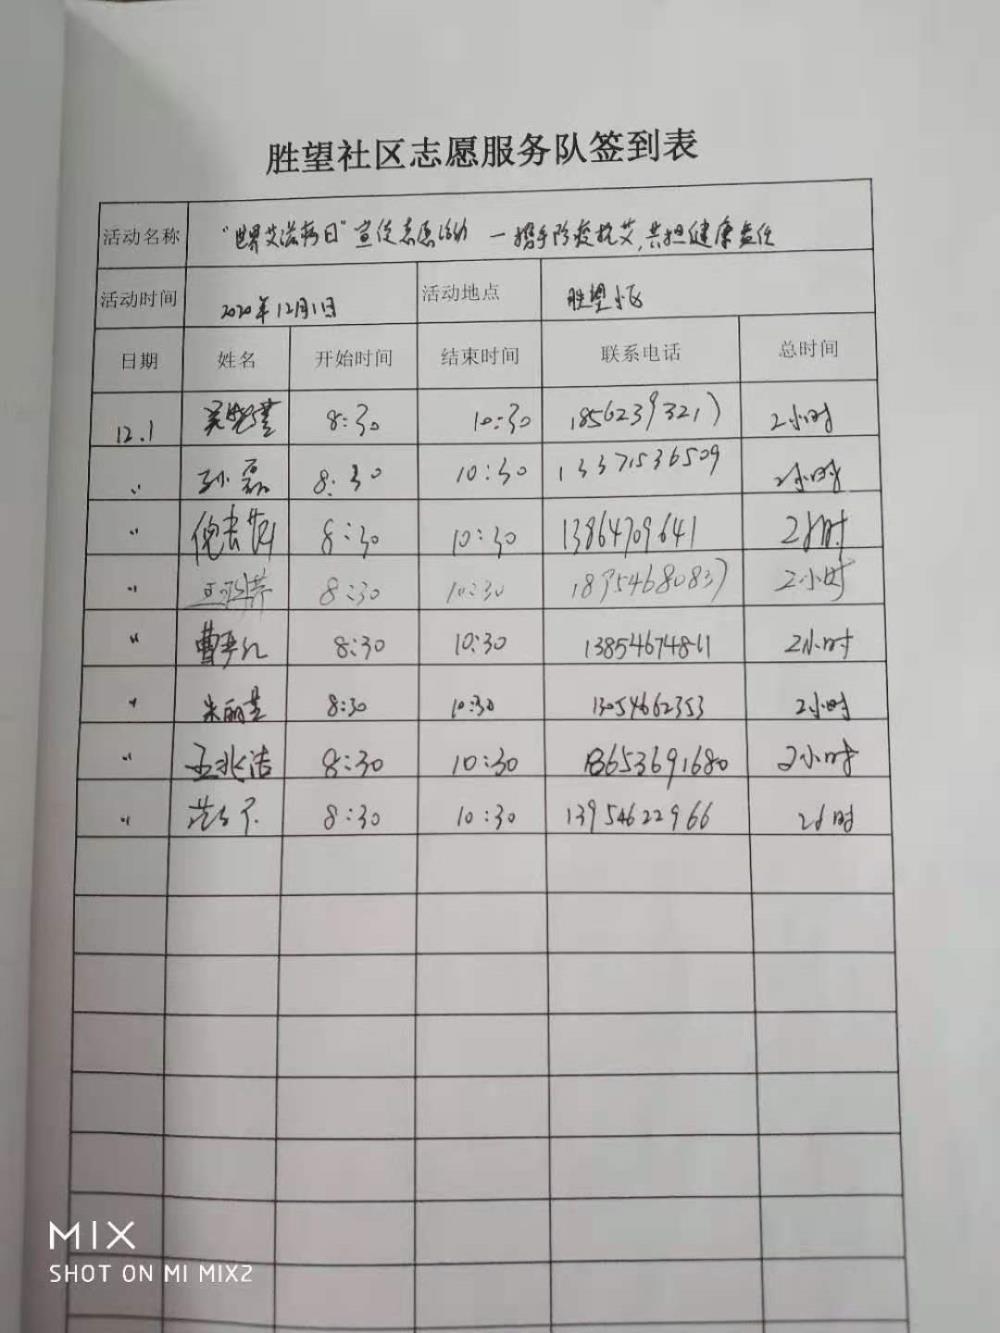 胜望社区志愿服务队签到表
活动名称 "世界艾滋病日"宣传志愿活动 一携手防疫抗艾,共担健康责任
活动时间 2020年12月1日 活动地点 胜望小区
日期 姓名 开始时间 结束时间 联系电话 总时间
12.1 8:30 10:30 18562393217 2小时
〃 孙磊 8:30 10:30 13371536509 2小时
〃 8:30 10:30 13864709641 2小时
〃 8:30 10:30 18954680837 2小时
〃 8:30 10:30 13854674811 2小时
〃 朱丽莹 8:30 10:30 13054662353 2小时
〃 王兆洁 8:30 10:30 18653691680 2小时
〃 8:30 10:30 13954622966 2小时
MIX
SHOT ON MI MIX2